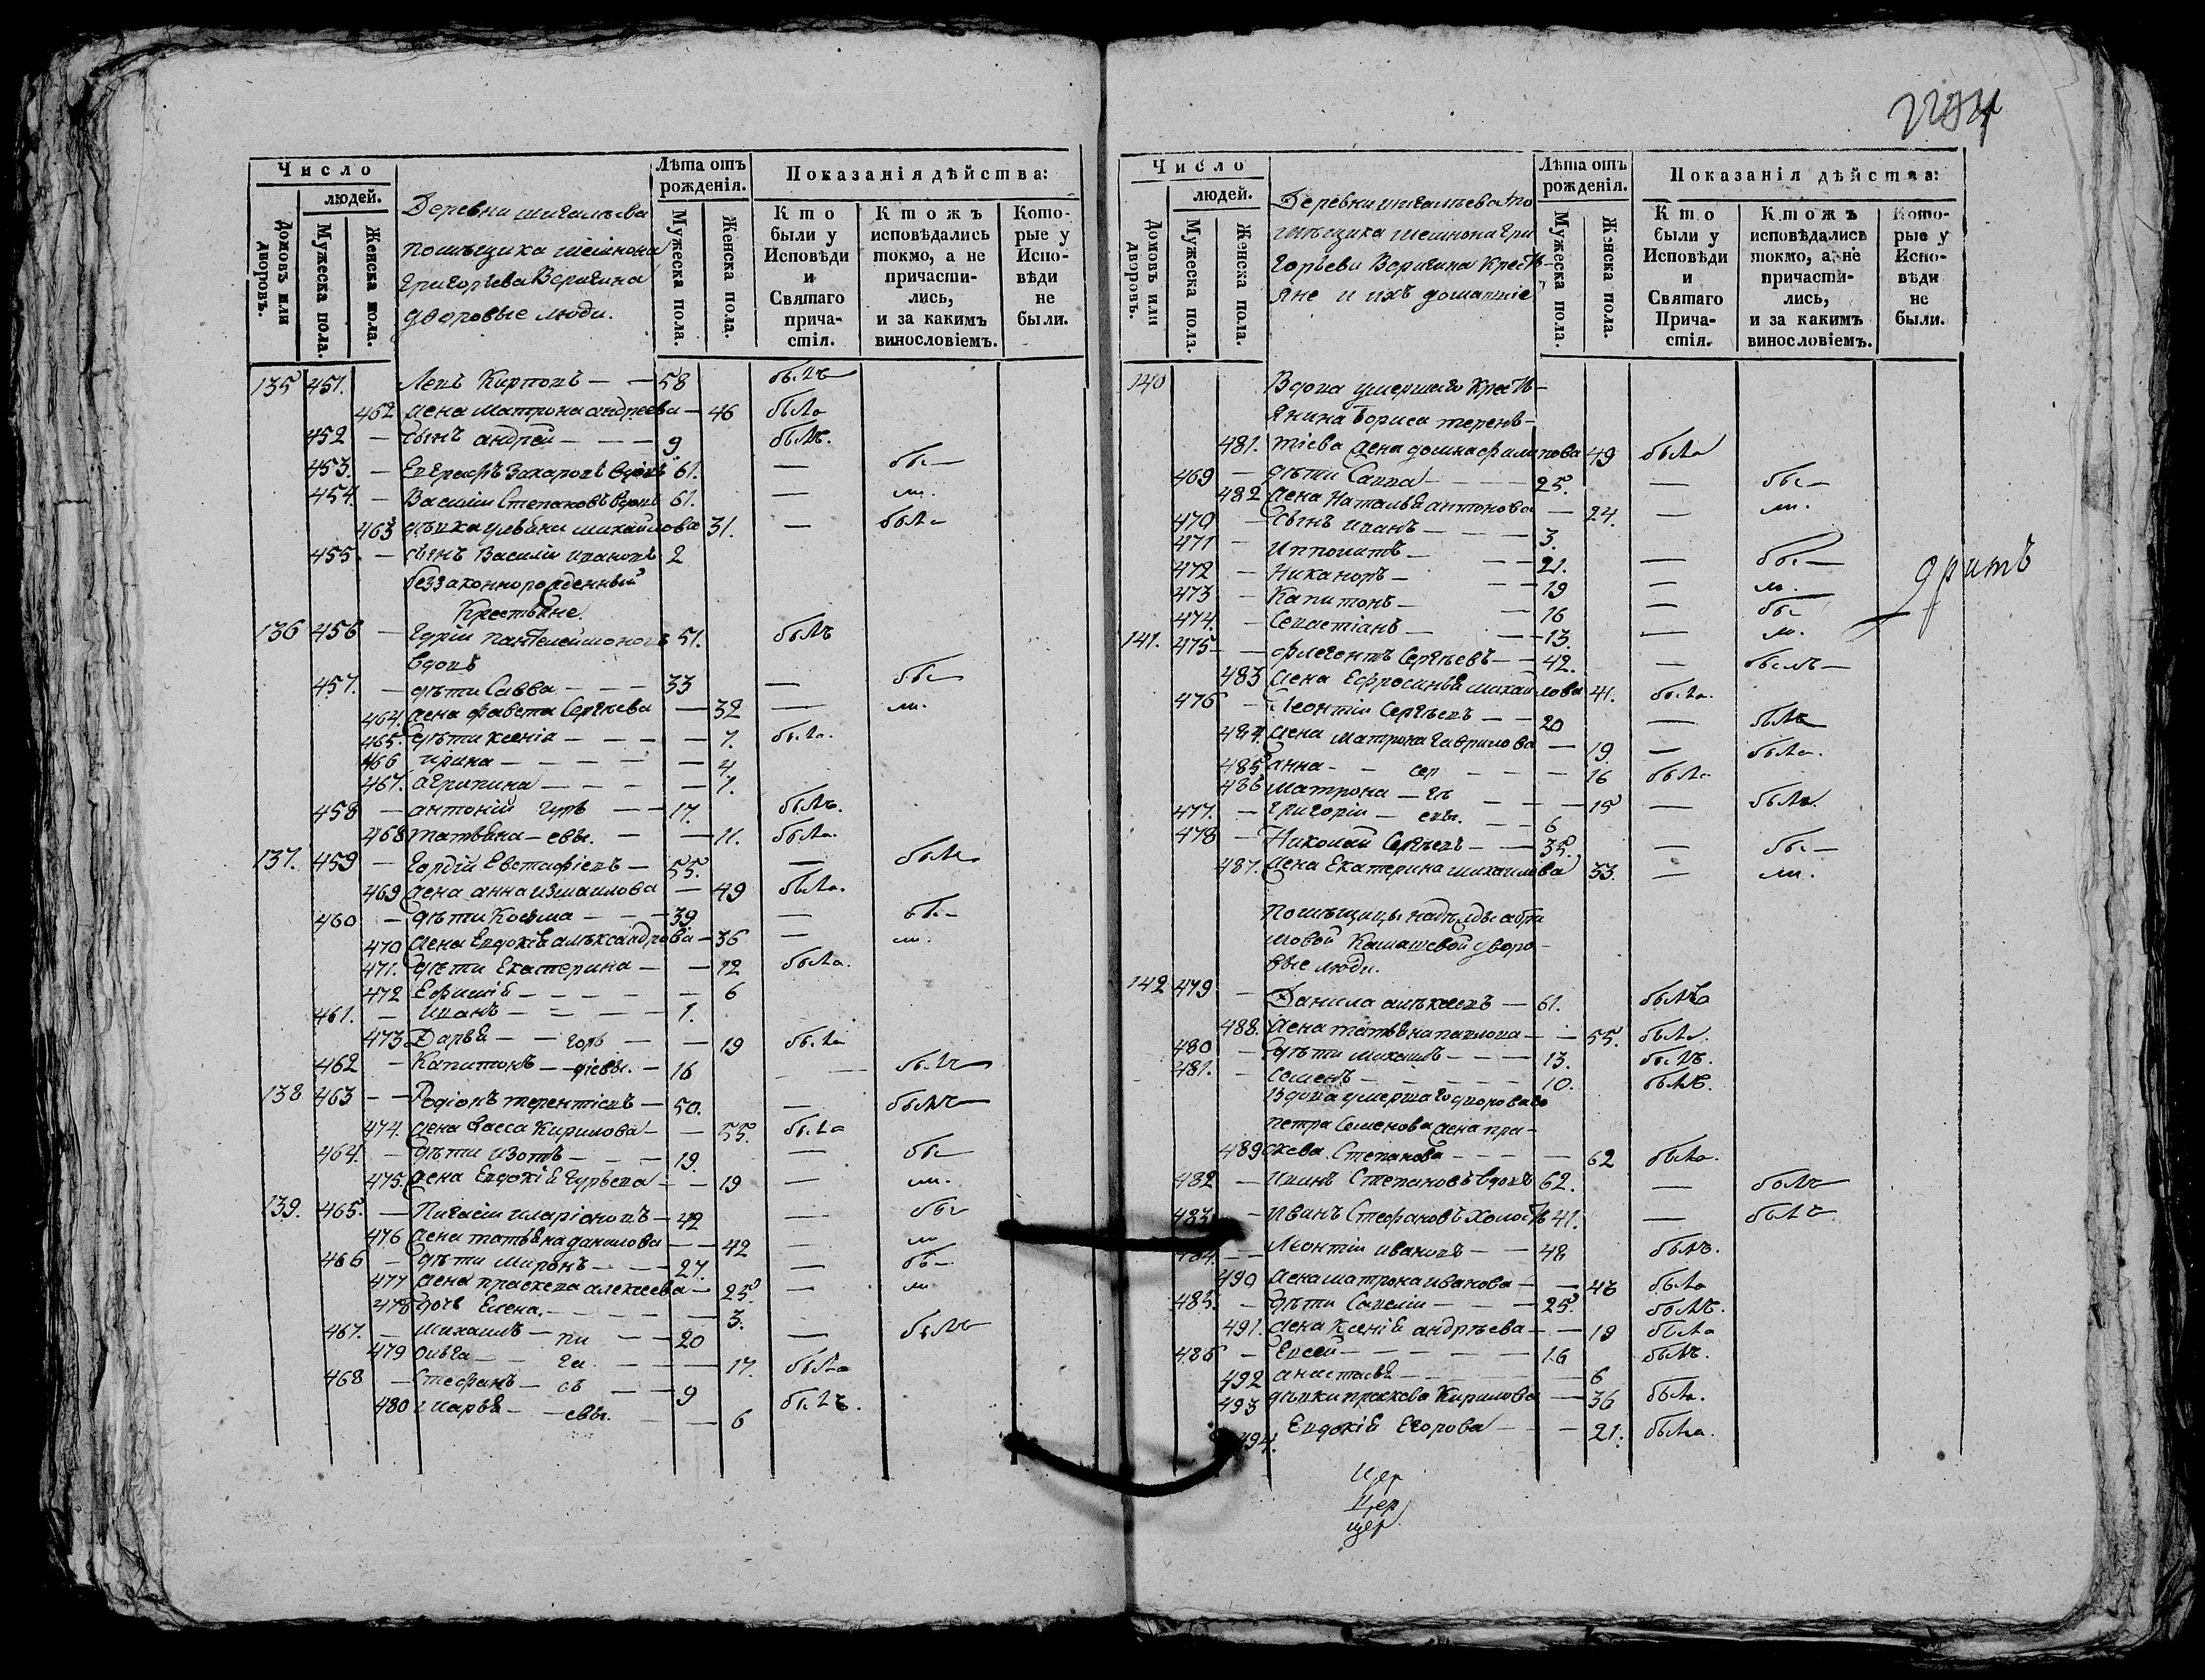 Число
людей.
Домовъ или дворовъ.
Мужеска пола.
Женска пола.
Деревни
помѣщика
Григорьева Веригина
дворовые люди.
Лѣта отъ рожденія.
Мужеска пола.
Женска пола.
Показанія дѣйства:
Кто были у Исповѣди и Святаго причастія.
Ктожъ исповѣдались токмо, а не причастились, и за какимъ винословіемъ.
Которые у Исповѣди не были.
135 451. Левъ Карповъ — — 58 былъ
462 жена матрона андреева — 46 была
452 — сынъ андрей — — — 9. былъ.
453. — Евграфъ Захаровъ вдовъ 61. — бы —
454. — Василіи Степановъ вдовъ 61. — ли.
463 дѣвка михайлова 31. — была
455 — сынъ Василіи ивановъ 2
беззаконнорожденный
Крестьяне.
136 456 — Гурій пантелеймоновъ 51. былъ
вдовъ
457. — дѣти Савва — — — 33 — бы
464. жена фавста Сергѣева — 32 — ли.
465. дѣти ксенія — — — — 7. была.
466 ирина — — — — — 4
467. агрипина — — — — 1.
458 — антоній гурь — — 17. былъ.
468 татьяна — евы. — — 11. была.
137. 459 — Гордій Евстафіевъ — 55. — былъ
469 жена анна измаилова — 49 была.
460 — дѣти Косьма — — — 39 — бы —
470 жена Евдокія алѣксандрова — 36 — ли.
471. дѣти Екатерина — — 12 была.
472 Ефимія — — — — — 6
461. — иванъ — — — — 1.
473 Дарья — — горь — — 19 была
462 — Капитонъ — діевы. — 16 — былъ
138 463 — — Родіонъ терентіевъ — 50. — былъ
474. жена Васса Кирилова — — 55. была
464. — дѣти изотъ — — — 19. — бы
475. жена Евдокія Гурьева — — 19 — ли.
139. 465. — Пигасіи иларіоновъ — 42 — бы
476 жена татьяна данилова — — 42 — ли
466 — дѣти миронъ — — — 27. — бы —
477 жена праскева алексеева — 25. — ли
478 дочь Елена. — — — — 3.
467. — михаилъ — пи — — 20 — былъ
479 ольга — — га — — — 17. была
468 — Стефанъ — съ — — 9 былъ.
480 марья — — евы. — — 6
Число
людей.
Домовъ или дворовъ.
Мужеска пола.
Женска пола.
Деревни по
мѣщика Гри
горьева Веригина Кресть-
яне и ихъ домашніе
Лѣта отъ рожденія.
Мужеска пола.
Женска пола.
Показанія дѣйства:
Кто были у Исповѣди и Святаго Причастія.
Ктожъ исповѣдались токмо, а не причастились, и за какимъ винословіемъ.
Которые у Исповѣди не были.
140 Вдова умершаго Кресть-
янина бориса терень-
481. тіева жена домна филипова 49 была
469 — дѣти Савва — — — 25. — бы —
482 жена Наталья антонова — 24. — ли.
470 — сынъ иванъ — — — 3.
471 — ипполитъ — — — 21. — бы —
472 — Никаноръ — — — 19 — ли.
473 — Капитонъ — — 16 — бы
474. — Севастіанъ — — — 13. — ли.
141. 475 — — флегонтъ Сергѣевъ — — 42. — былъ —
483 жена Ефросинья михаилова 41. была.
476 — Леонтіи Сергѣевъ — — 20 — былъ
484. жена матрона гаврилова — 19 — была.
485 анна — — сер — — — 16 была
486 матрона — гѣ — — — 15 — была.
477. — григоріи — евы. — — 6
478 — Николай Сергѣевъ — — 35. — бы —
487. жена Екатерина михаилова 33. — ли.
помѣщицы надѣжды абра
мовой дворо-
вые люди.
142 479 — Данила алѣксеевъ — 61. былъ
488. жена татьяна павлова — — 55. была.
480 — дѣти михаилъ — — — 13. былъ.
481. — семенъ — — — — 10. былъ.
Вдова умершаго двороваго
петра Семенова жена пра-
489 скева Степанова — — — — 62 была.
482 — иванъ Степановъ вдовъ 62. — былъ
483 — иванъ Стефановъ холостъ 41. — былъ
484. — — Леонтіи ивановъ — — 48 былъ.
490 жена матрона иванова — — 48 была
485. — дѣти Савеліи — — — 25. былъ.
491. жена Ксенія андрѣева — — 19 была
486 — Евсей — — — — — 16 былъ.
492 анастасья — — — — — 6
493 дѣвки праскева Кирилова — 36 была.
494. Евдокія Егорова — — — 21. была.
Цер
Цер
цер